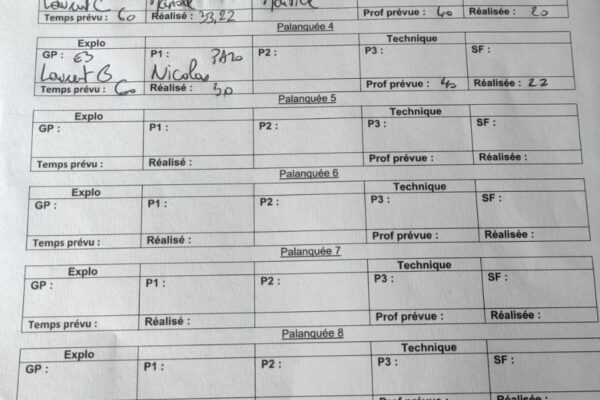 Laurent C
Temps prévu : 60 Réalisé : 33,22 Prof prévue : 40 Réalisée : 20
Palanquée 4
Explo Technique
GP : E3 P1 : PA20 P2 : P3 : SF :
Laurent B Nicolas
Temps prévu : 60 Réalisé : 30 Prof prévue : 40 Réalisée : 22
Palanquée 5
Explo Technique
GP : P1 : P2 : P3 : SF :
Temps prévu : Réalisé : Prof prévue : Réalisée :
Palanquée 6
Explo Technique
GP : P1 : P2 : P3 : SF :
Temps prévu : Réalisé : Prof prévue : Réalisée :
Palanquée 7
Explo Technique
GP : P1 : P2 : P3 : SF :
Temps prévu : Réalisé : Prof prévue : Réalisée :
Palanquée 8
Explo Technique
GP : P1 : P2 : P3 : SF :